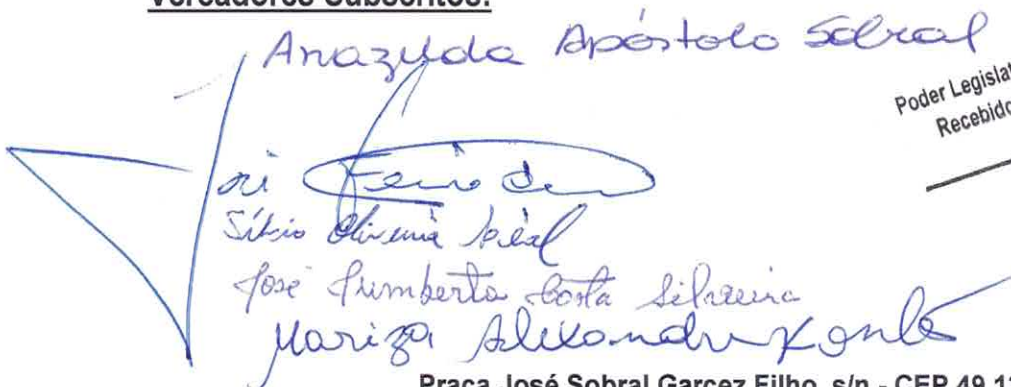 Vereadores Subscritos:
Anazilda Apóstolo Sobral
Poder Legislat
Recebido
Sílvio Oliveira
José Humberto Costa Silveira
Mariza Alexandre
Praça José Sobral Garcez Filho, s/n - CEP 49.1